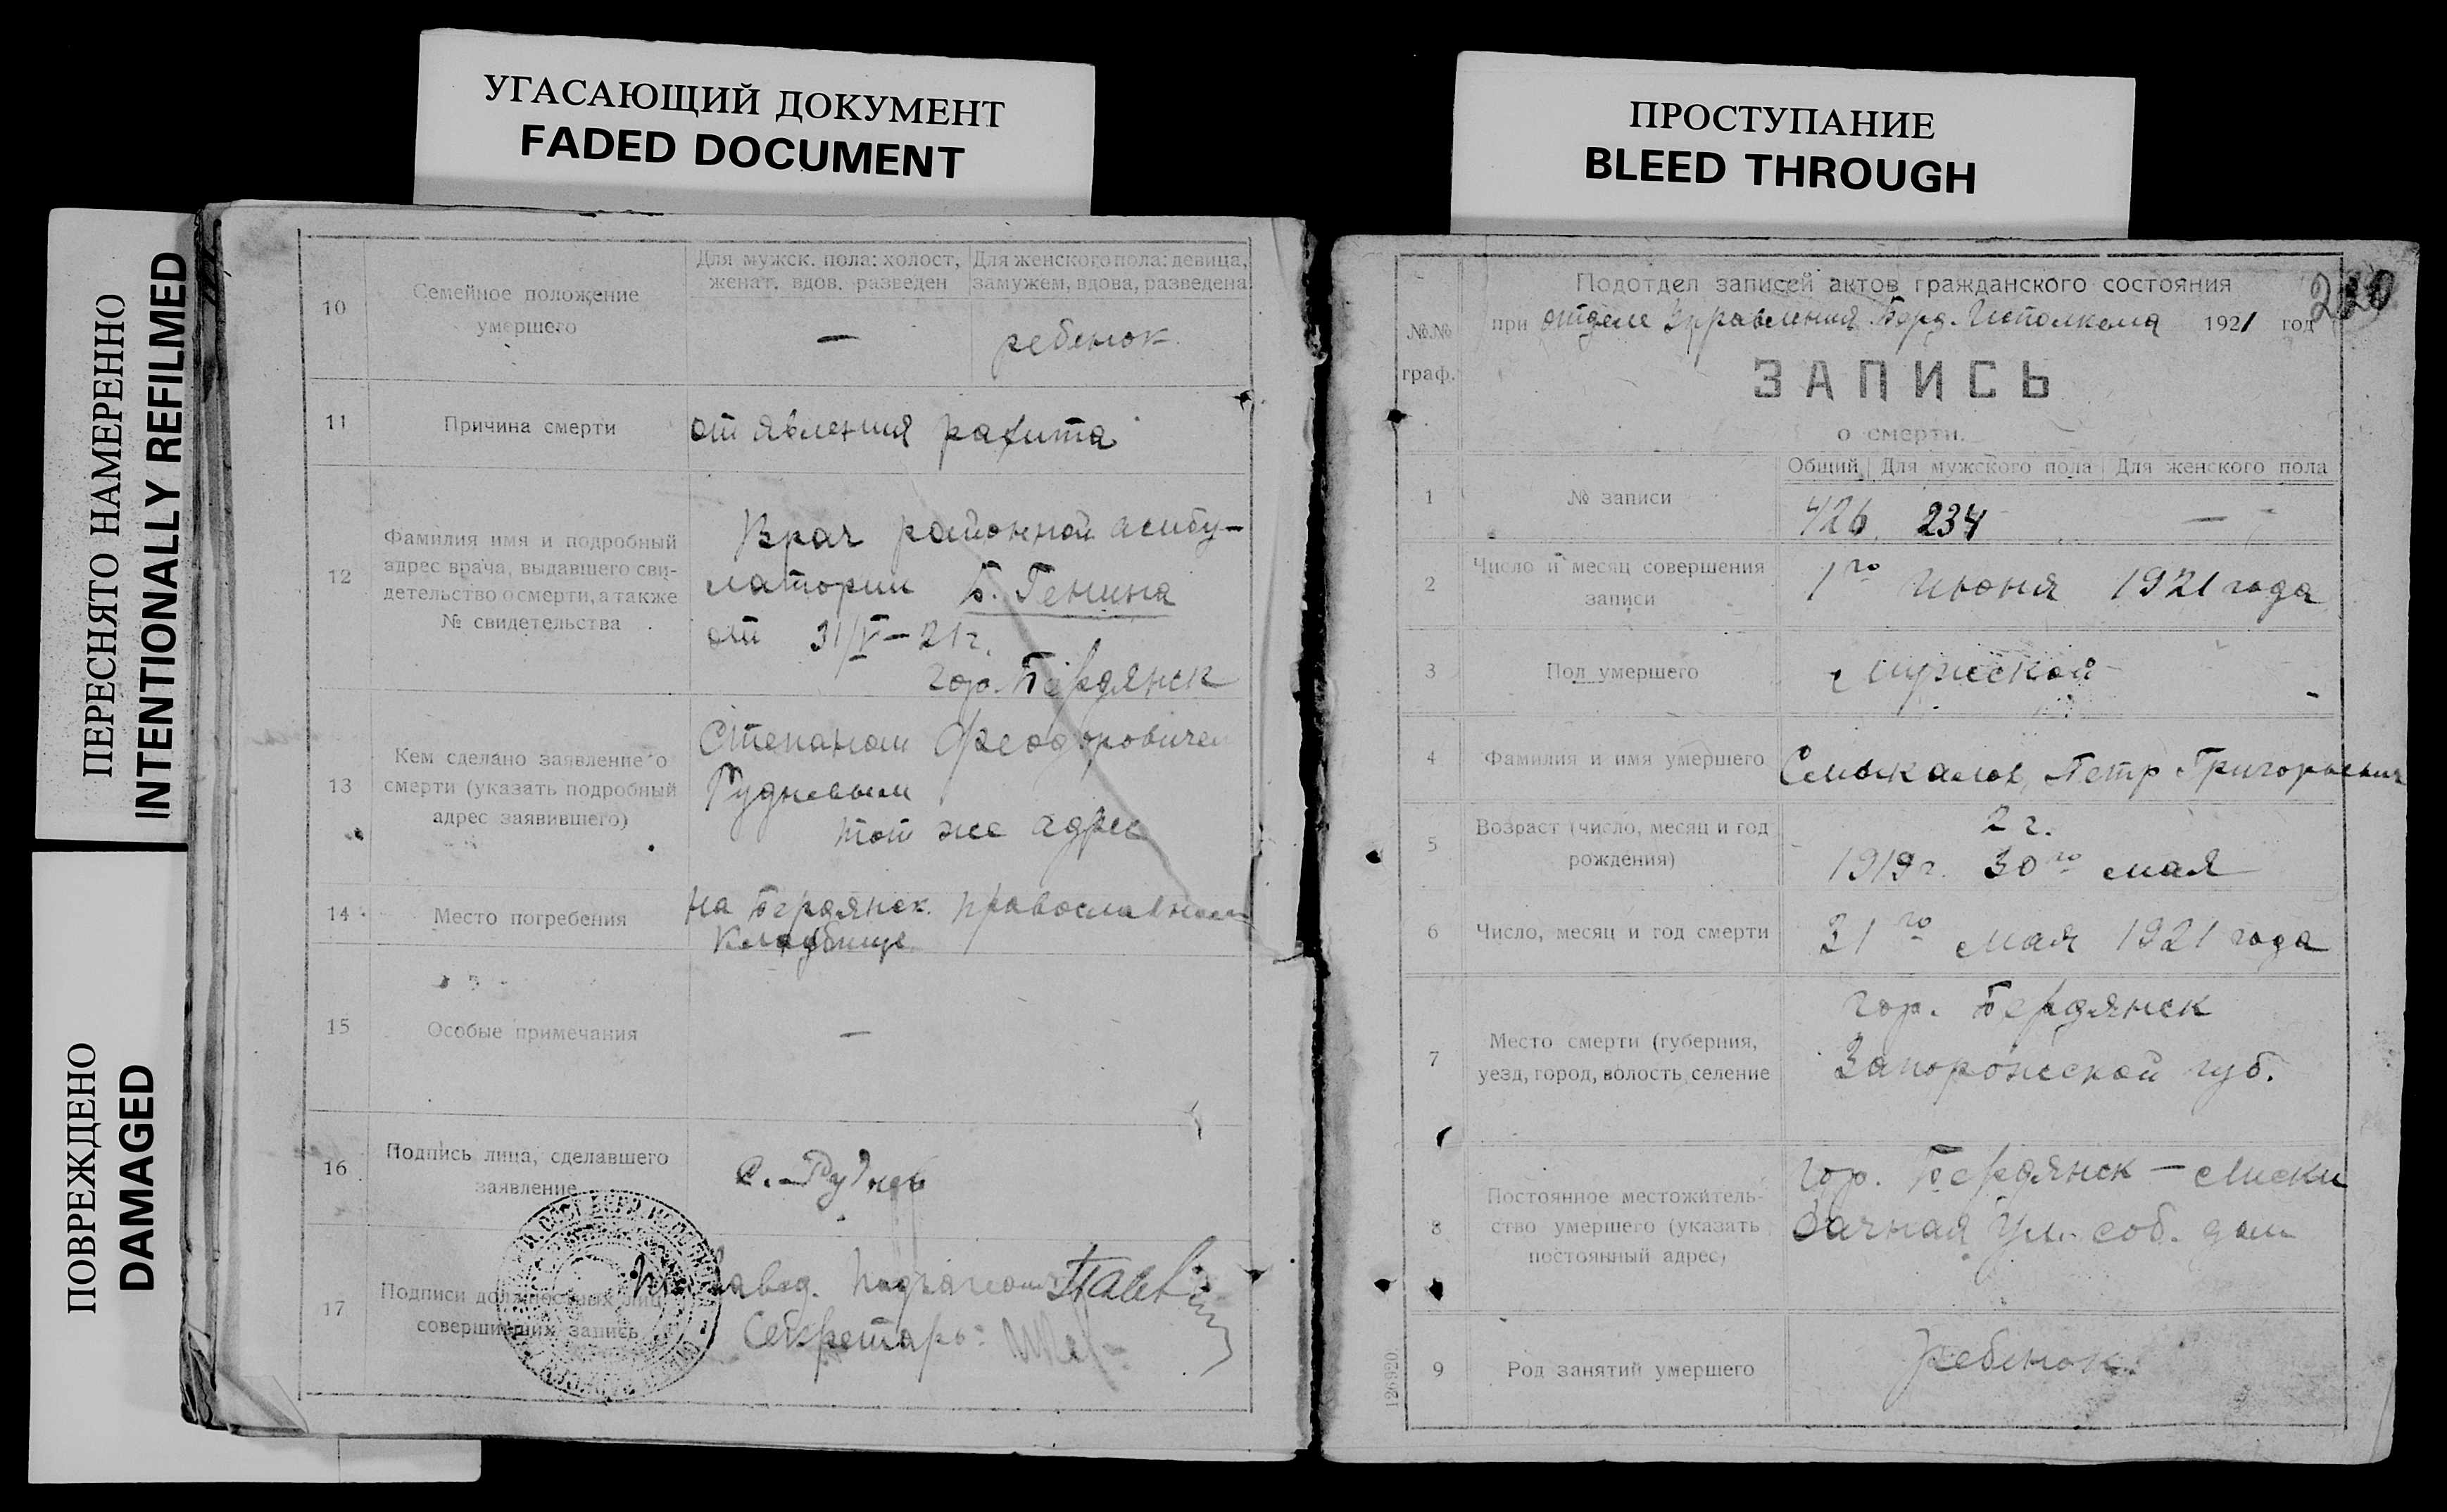 УГАСАЮЩИЙ ДОКУМЕНТ
FADED DOCUMENT
ПРОСТУПАНИЕ
BLEED THROUGH
ПЕРЕСНЯТО НАМЕРЕННО
INTENTIONALLY REFILMED
ПОВРЕЖДЕНО
DAMAGED
10
Семейное положение
умершего
Для мужск. пола: холост,
женат, вдов, разведен
Для женского пола: девица,
замужем, вдова, разведена
—
ребенок
11
Причина смерти
от явления рахита
12
Фамилия имя и подробный
адрес врача, выдавшего сви-
детельство о смерти, а также
№ свидетельства
Врач районной амбу-
латории Б. Генина
от 31/V – 21 г.
гор. Бердянск
13
Кем сделано заявление о
смерти (указать подробный
адрес заявившего)
Степаном Феодоровичем
Рудневым
тот же адрес
14
Место погребения
на Бердянск. православном
кладбище
15
Особые примечания
—
16
Подпись лица, сделавшего
заявление
С. Руднев
17
Подписи должностных лиц
совершивших запись
Завед.
Секретарь:
№№
граф.
Подотдел записей актов гражданского состояния
при отделе Управления Берд. Исполкома 1921 год
220
ЗАПИСЬ
о смерти.
1
№ записи
Общий Для мужского пола Для женского пола
426 234 —
2
Число и месяц совершения
записи
1го июня 1921 года
3
Пол умершего
мужской
4
Фамилия и имя умершего
Смыкалов, Петр Григорьевич
5
Возраст (число, месяц и год
рождения)
2 г.
1919 г. 30го мая
6
Число, месяц и год смерти
31го мая 1921 года
7
Место смерти (губерния,
уезд, город, волость, селение
гор. Бердянск
Запорожской губ.
8
Постоянное местожитель-
ство умершего (указать
постоянный адрес)
гор. Бердянск – Лиски
Дачная ул. соб. дом
9
Род занятий умершего
ребенок
126920